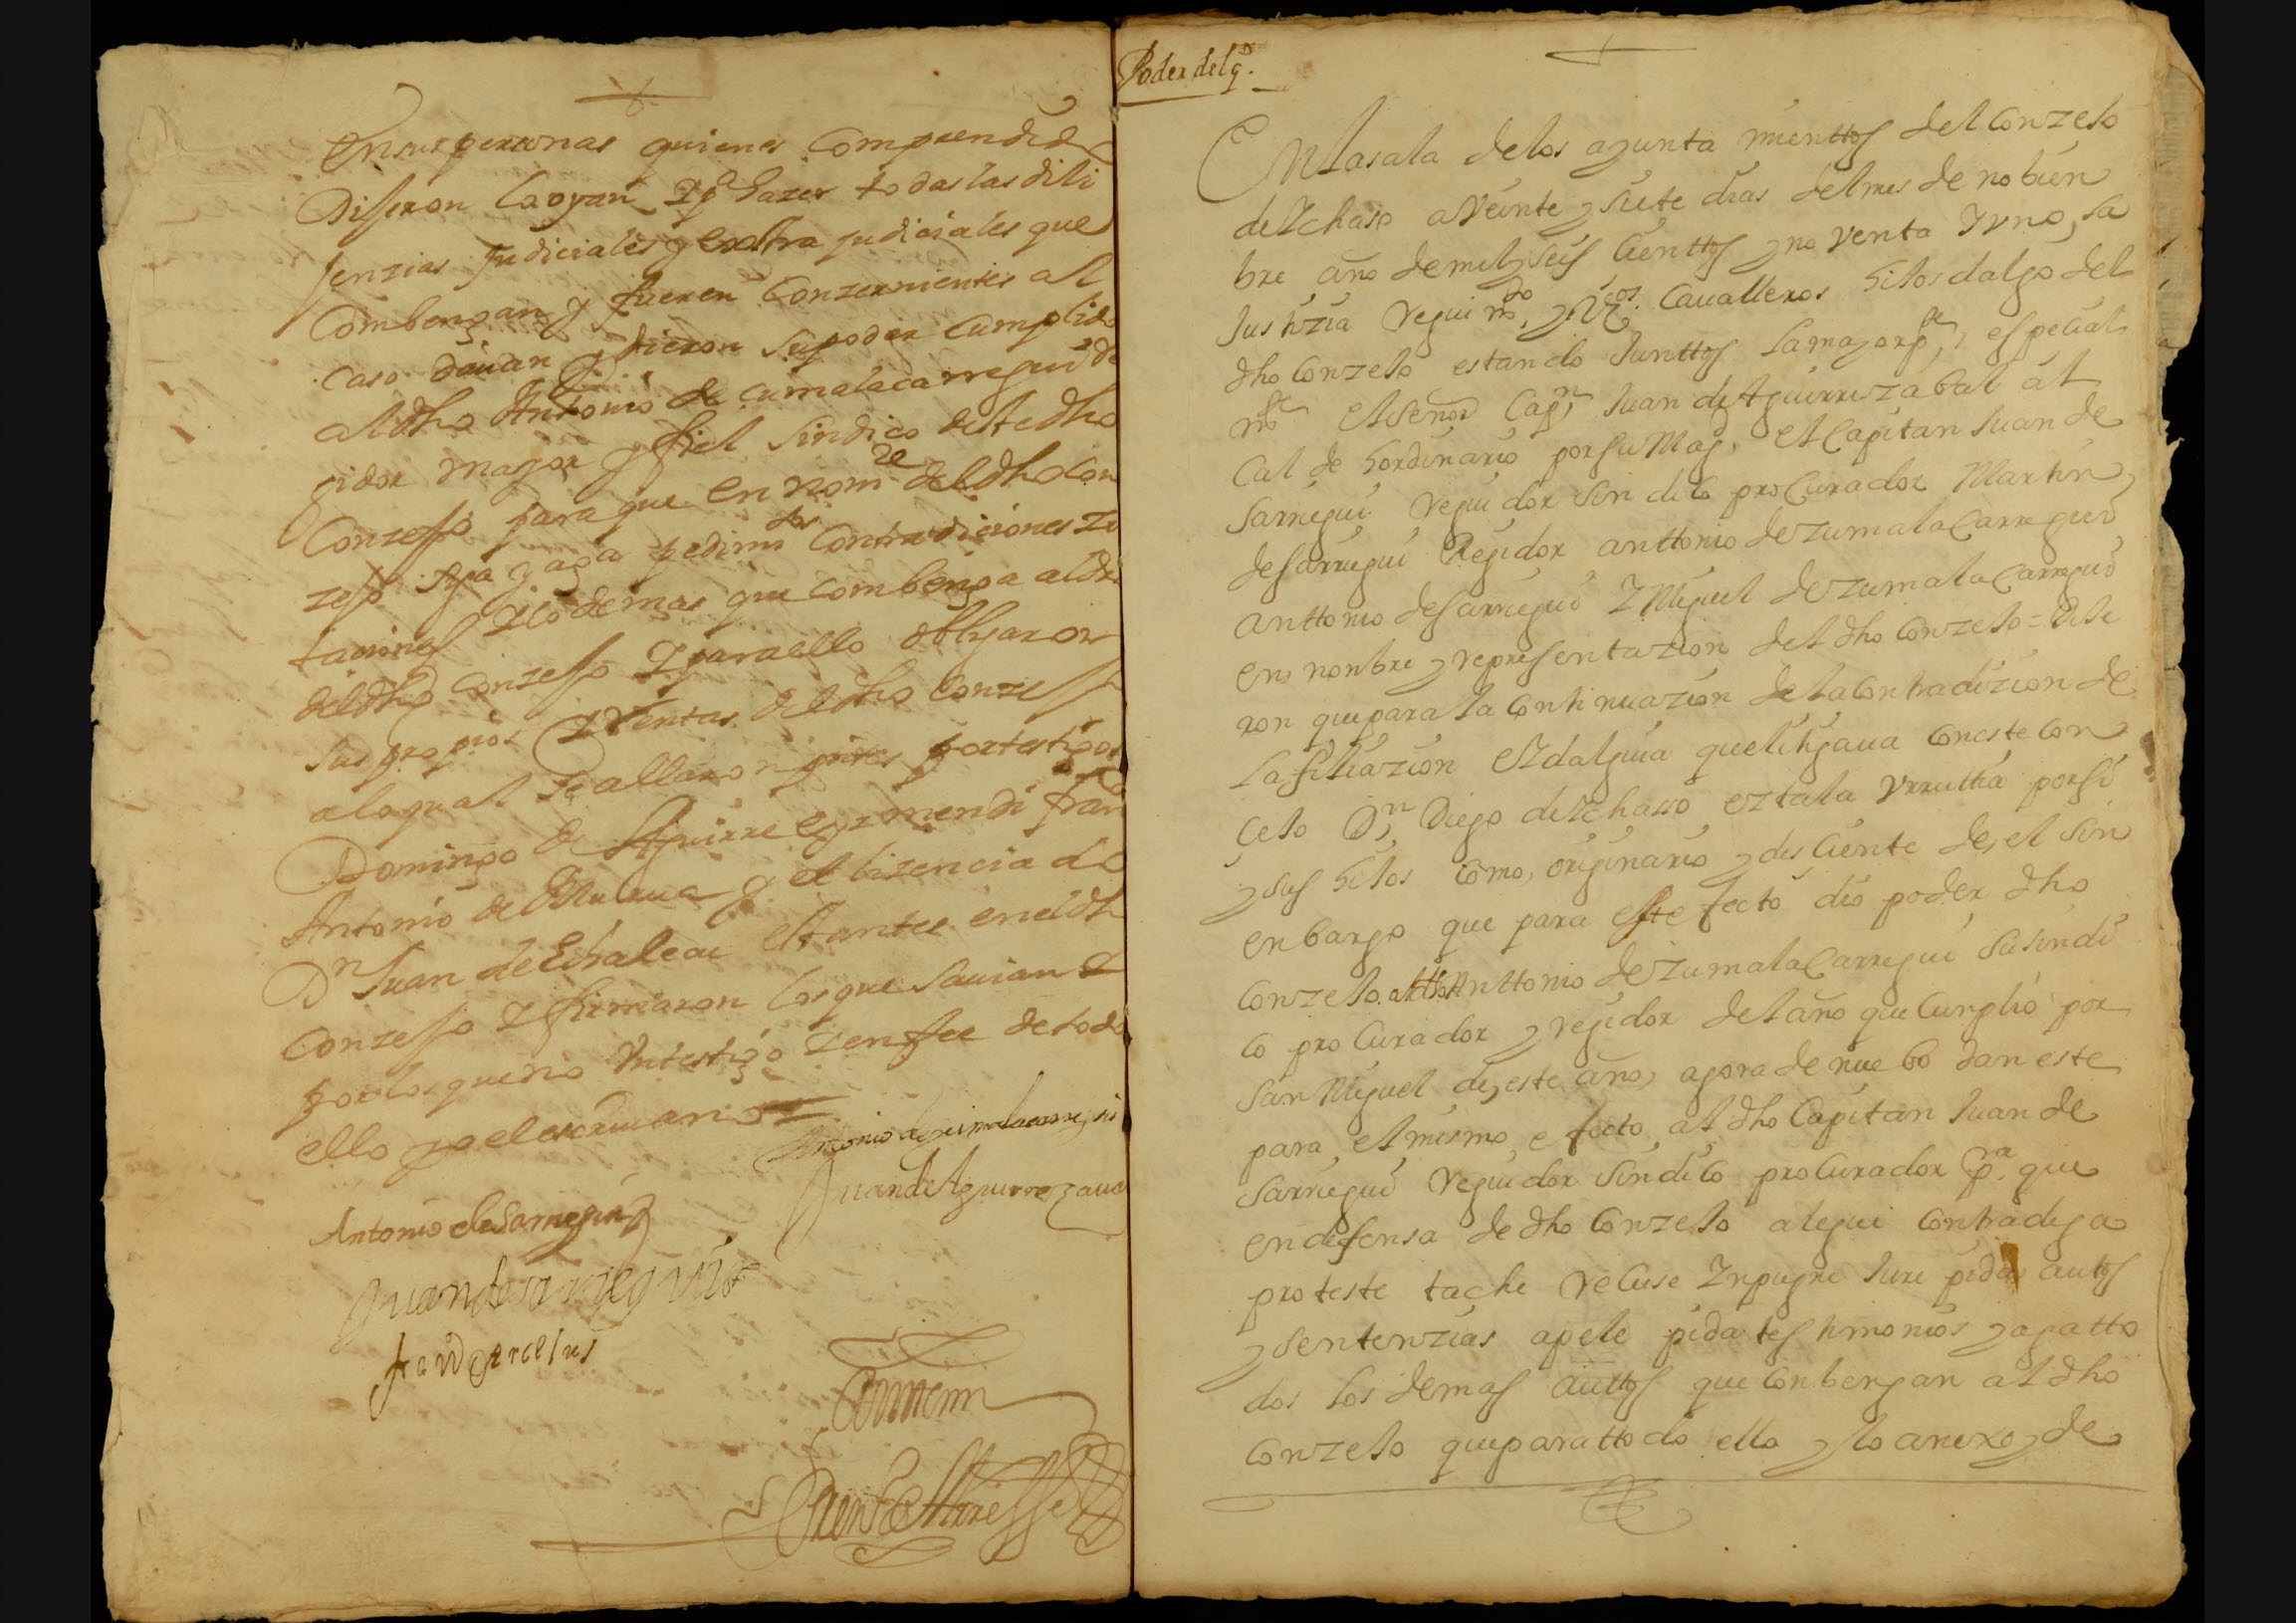 En sus personas quienes Comprendida
Dijeron la oyan Y pa hazer todas las dili
jenzias Judiciales y extra judiciales que
Combengan y fueren Conzernientes al
Caso dauan y dieron su poder cumplido
al dho Antonio de çumalacarregui Re
gidor mayor y fiel sindico deste dho
Conzejo para que en nomre del dho Con
zejo Aga y aga pedimtos Contradiciones
taciones Y lo demas que combenga al dro
del dho Conzejo Y para ello obligaron
Sus propios Y Rentas del dho Conzejo
a lo qual se allaron por testigos
Domingo de Aguirre
Antonio de y el lizencia do
Dn Juan de Echaleçu estantes en el dho
Conzejo Y firmaron los que sauian Y
por los que no Un testigo Y en fee de todo
ello yo el escriuano
Antonio de zumalacarregui
Juan de Aguirrezaual
Antonio de Sarriegui
Juan de sarriegui
Ante mi
Poder delg.
En la sala de los ayuntamienttos del Conzejo
de Ychaso a Veinte y siete dias del mes de nobien
bre año de mil y seis Cienttos y no venta Y vno, la
Justizia reguimto, y vos. Caualleros hijos dalgo del
dho Conzejo estando Junttos la mayor pte, espeçial
mte El señor Capn Juan de Aguirrezabal al
cal de hordinario por su Mag. el Capitan Juan de
Sarriegui reguidor sindico proCurador Martin
de Sarriegui Regidor anttonio de zumalaCarregui
anttonio de Sarriegui Y Miguel de zumalaCarregui
en nonbre y representazion del dho Conzejo = Dije
ron que para la Continuazion de la Contradizion de
la filiazion Y dalguia que litigaua con este con
çejo Dn Diego de Ychasso eztala Vrruttia por si
y sus hijos como, originario y disCiente de, el sin
enbargo que para este fecto dio poder dho
Conzejo al dho Anttonio de zumalaCarregui su sindi
co proCurador y regidor del año que Cunplio por
San Miguel de, este año, agora de nuebo dan este
para el mismo efecto al dho Capitan Juan de
Sarriegui Reguidor sindico proCurador pa. que
en defensa de dho Conzejo alegui Contradiga
proteste tache recuse Ynpugne Jure pida autos
y sentenzias apele pida testimonios y aga tto
dos los demas auttos que Conbengan al dho
Conzejo que para ttodo ello y lo anexo y de